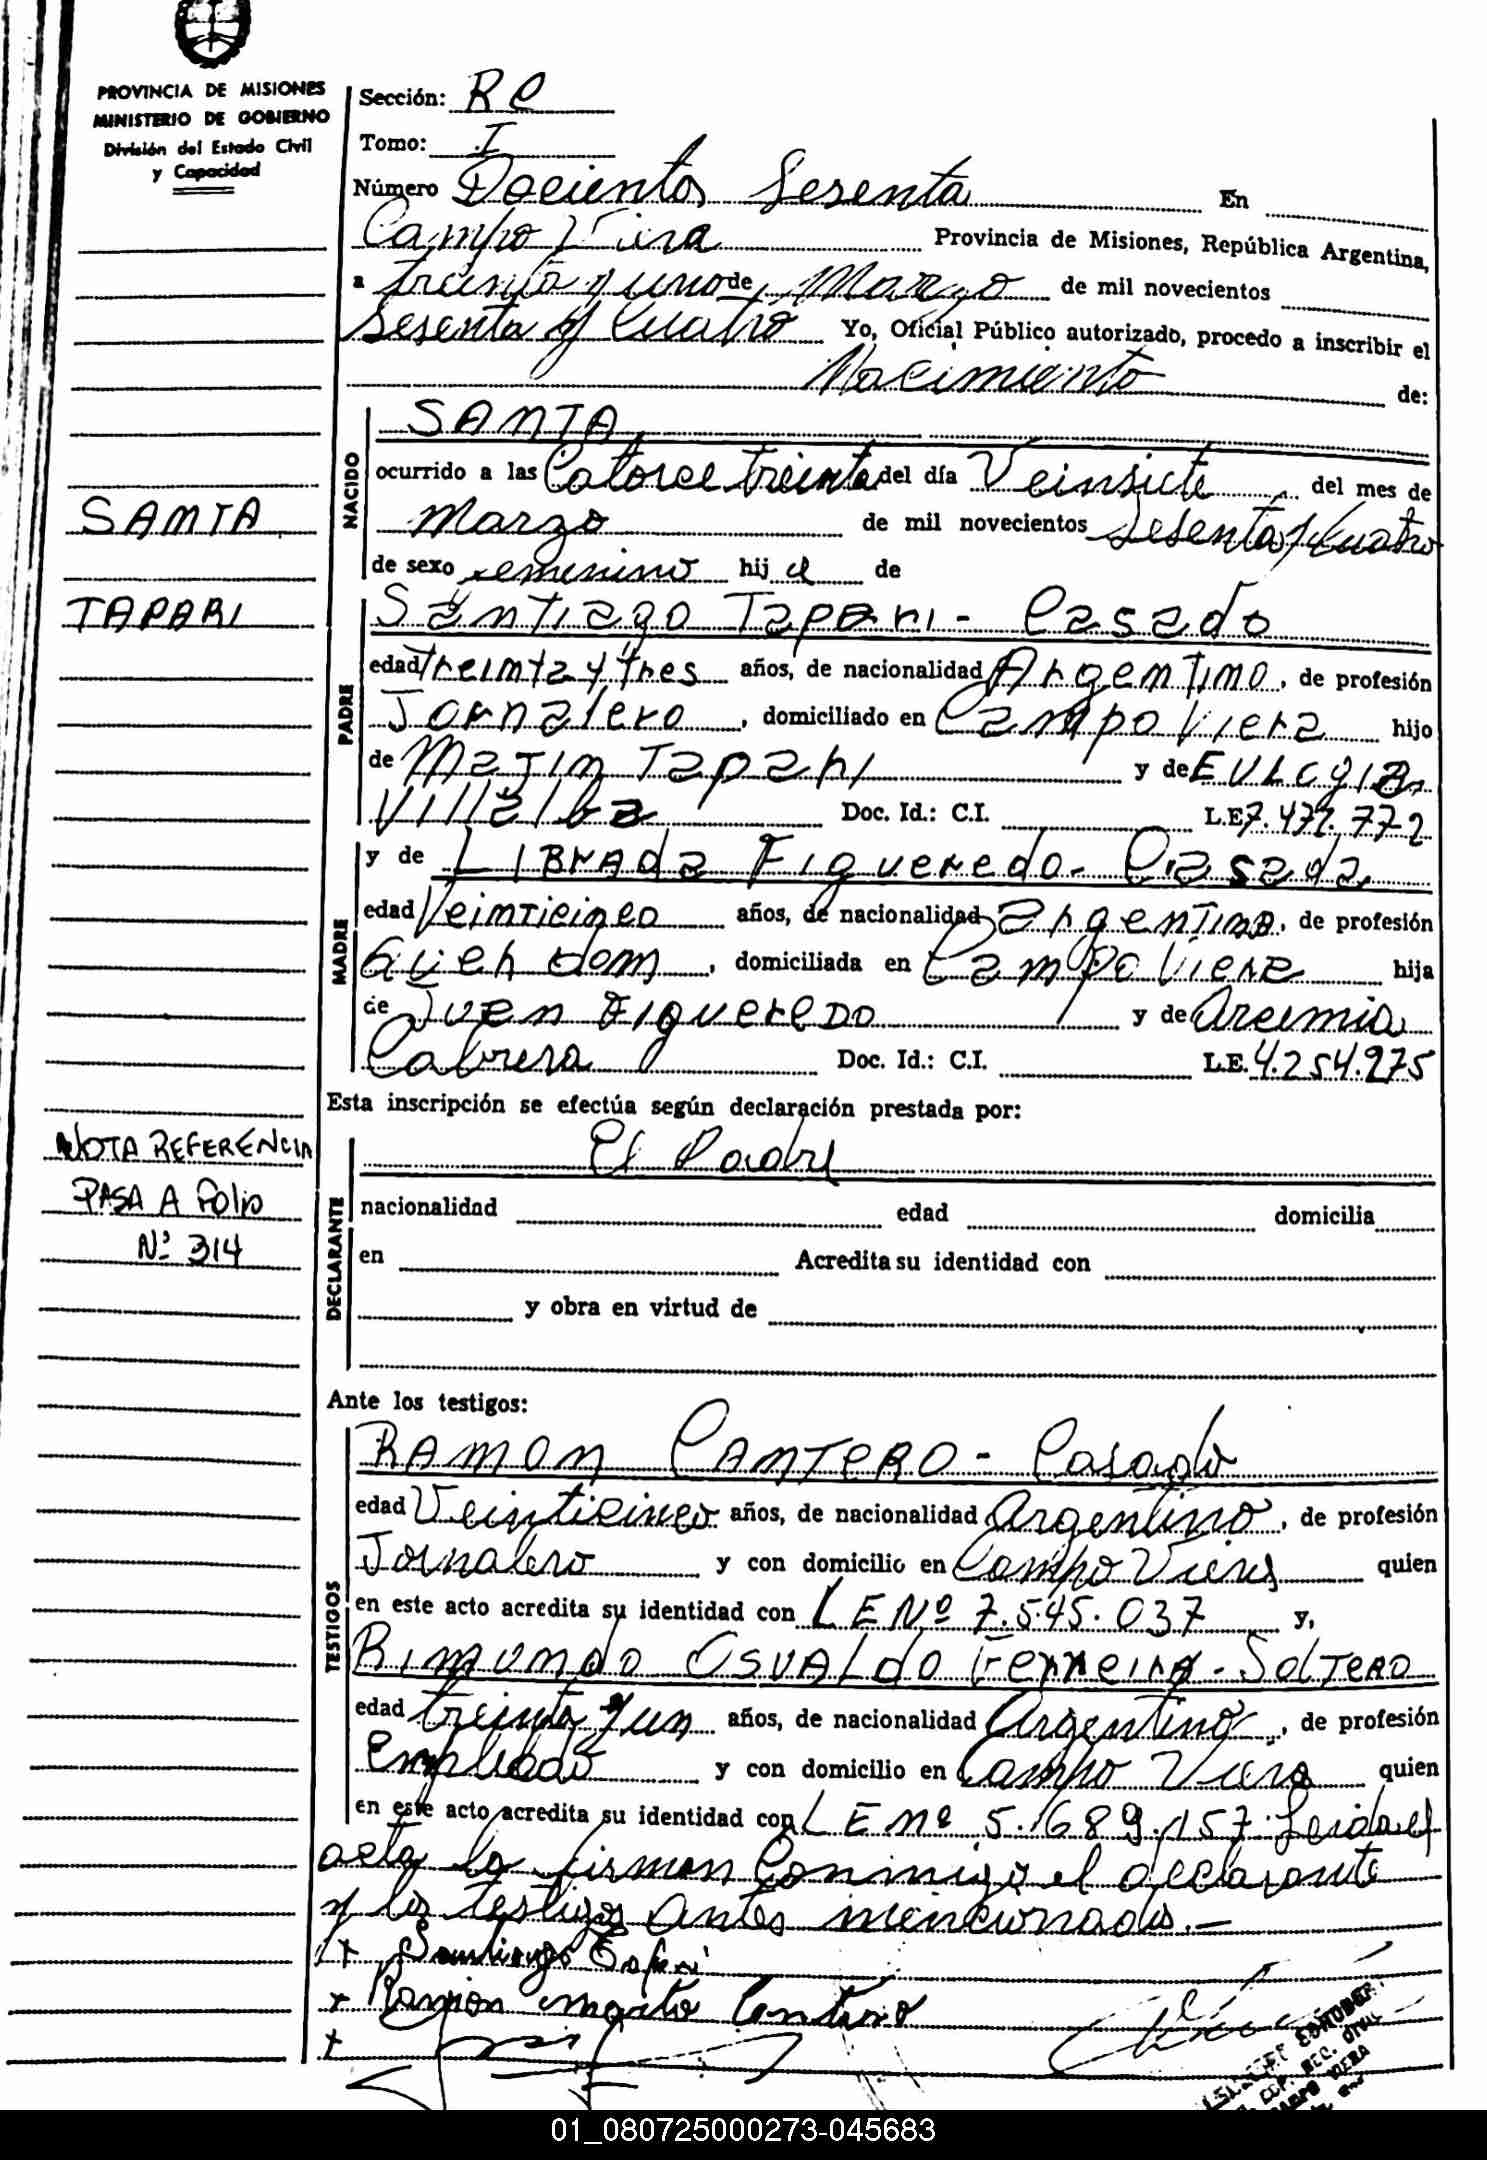 PROVINCIA DE MISIONES
MINISTERIO DE GOBIERNO
División del Estado Civil
y Capacidad
Sección: RC
Tomo: I
Número Docientos Sesenta En
Campo Viera Provincia de Misiones, República Argentina,
a treinta y uno de Marzo de mil novecientos
Sesenta y Cuatro Yo, Oficial Público autorizado, procedo a inscribir el
Nacimiento de:
NACIDO
SANTA
ocurrido a las Catorce treinta del día Veinsiete del mes de
Marzo de mil novecientos Sesenta y Cuatro
de sexo femenino hij a de
SANTA
TAPARI
PADRE
Santiago Tapari - Casado
edad treinta y tres años, de nacionalidad Argentino, de profesión
Jornalero, domiciliado en Campo Viera hijo
de Tapari y de Eulogia
Villalba Doc. Id.: C.I. L.E. 7.477.772
MADRE
y de Librada Figueredo - Casada
edad Veinticinco años, de nacionalidad argentina, de profesión
dom, domiciliada en Campo Viera hija
de Juan Figueredo y de
Cabrera Doc. Id.: C.I. L.E. 4.254.275
Esta inscripción se efectúa según declaración prestada por:
NOTA REFERENCIA
PASA A Folio
Nº 314
DECLARANTE
El Padre
nacionalidad edad domicilia
en Acredita su identidad con
y obra en virtud de
Ante los testigos:
TESTIGOS
RAMON CANTERO - Casado
edad Veinticinco años, de nacionalidad Argentino, de profesión
Jornalero y con domicilio en Campo Viera quien
en este acto acredita su identidad con LE Nº 7.545.037 y,
OSVALDO Ferreira - SolTERO
edad treinta y un años, de nacionalidad Argentino, de profesión
Empleado y con domicilio en Campo Viera quien
en este acto acredita su identidad con LE Nº 5.689.157. Leida el
acta la firman Conmigo el declarante
y los testigos antes mencionados.-
x Santiago Tapari
x Ramon Cantero
x
01_080725000273-045683